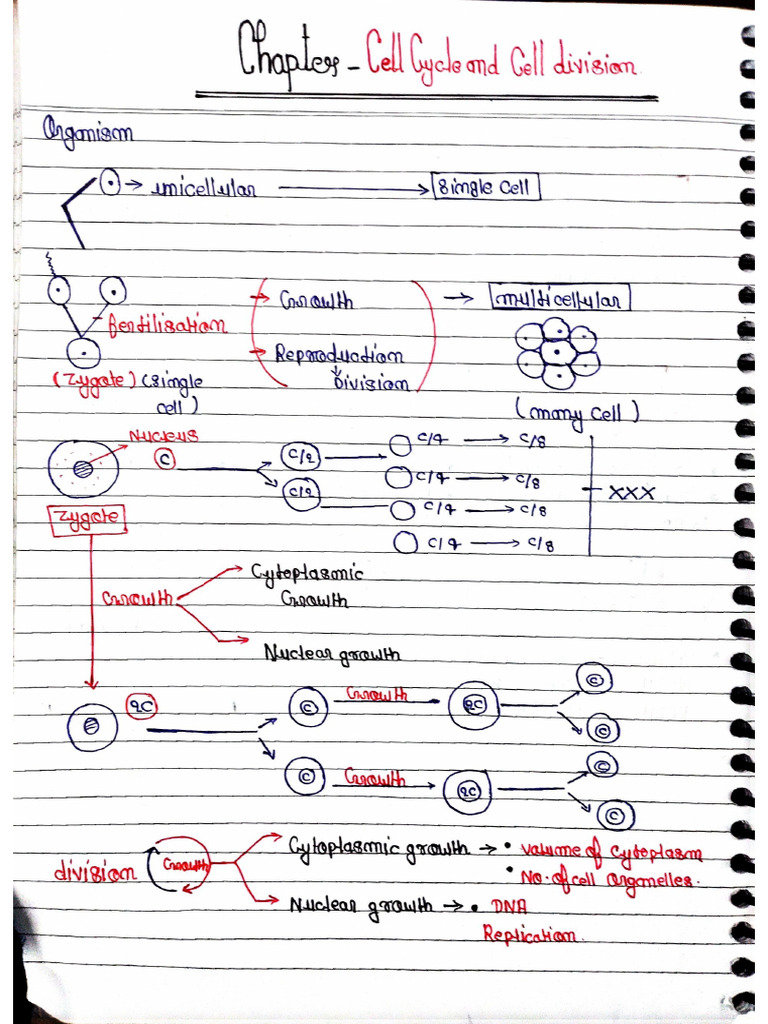 Chapter - Cell Cycle and Cell division
Organism
→ unicellular → Single Cell
fertilisation
→ Growth → multicellular
→ Reproduction
↓ Division
(Zygate) (single cell)
(many cell)
Nucleus
C
C/2
C/2
C/4 → C/8
C/4 → C/8
C/4 → C/8
C/4 → C/8
XXX
Zygote
Growth
Cytoplasmic Growth
Nuclear growth
2C
C Growth 2C C
C
C Growth 2C C
C
division Growth
Cytoplasmic growth → • Valume of Cytoplasm
• No. of cell Organelles.
Nuclear growth → • DNA
Replication.